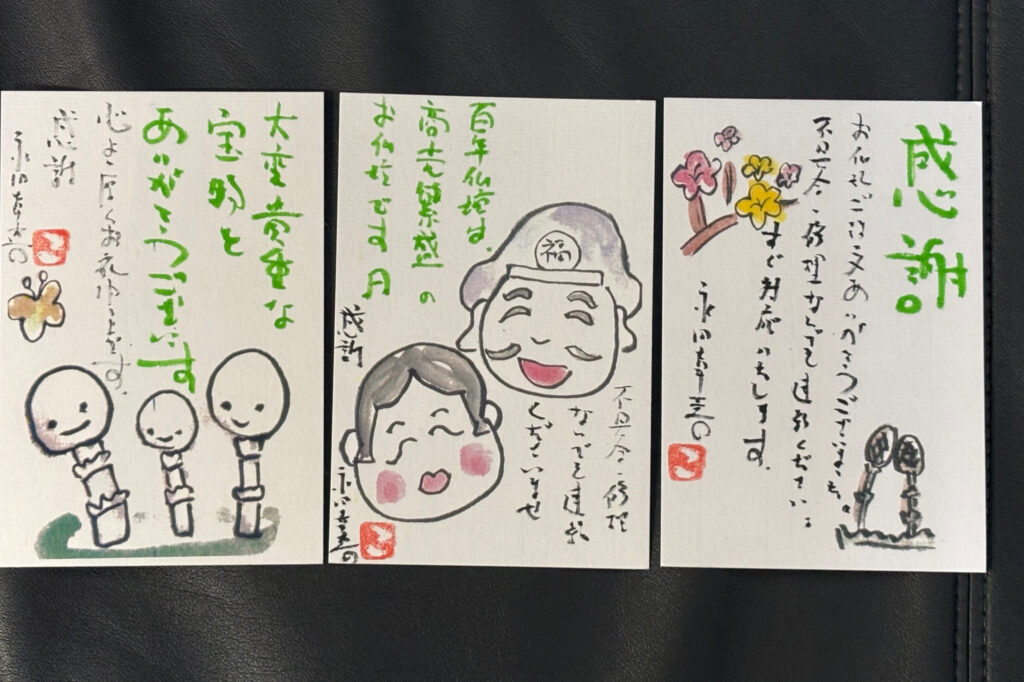 感謝。
お仏壇ご注文ありがとうございます。
不具合・修理なんでも連絡ください。
すぐ対応いたします。
百年仏壇は、
商売繁盛の
お仏壇です
感謝
福
不具合・修理
なんでも連絡
くださいませ
大変貴重な
宝物を
ありがとうございます
心より厚くお礼申し上げます。
感謝